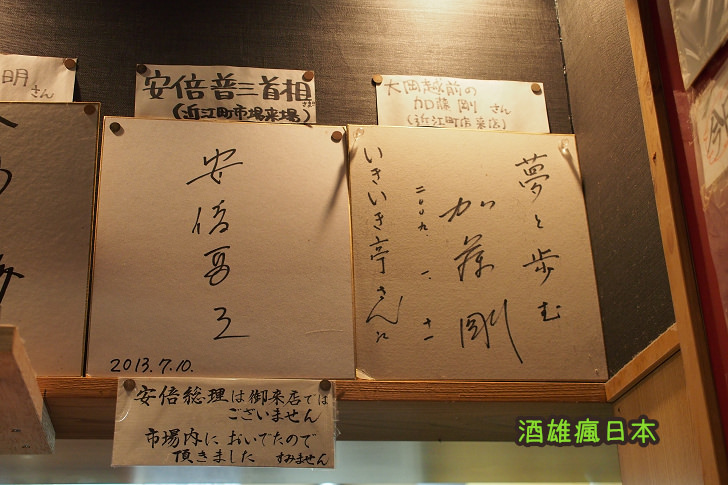 明さん
安倍晋三首相
(近江町市場来場)
安倍晋三
2013.7.10.
安倍総理は御来店では
ございません
市場内においでたので
頂きました すみません
大岡越前の
加藤剛さん
(近江町店来店)
夢と歩む
加藤剛
二〇〇九.一.十一
いきいき亭さんに
酒雄瘋日本